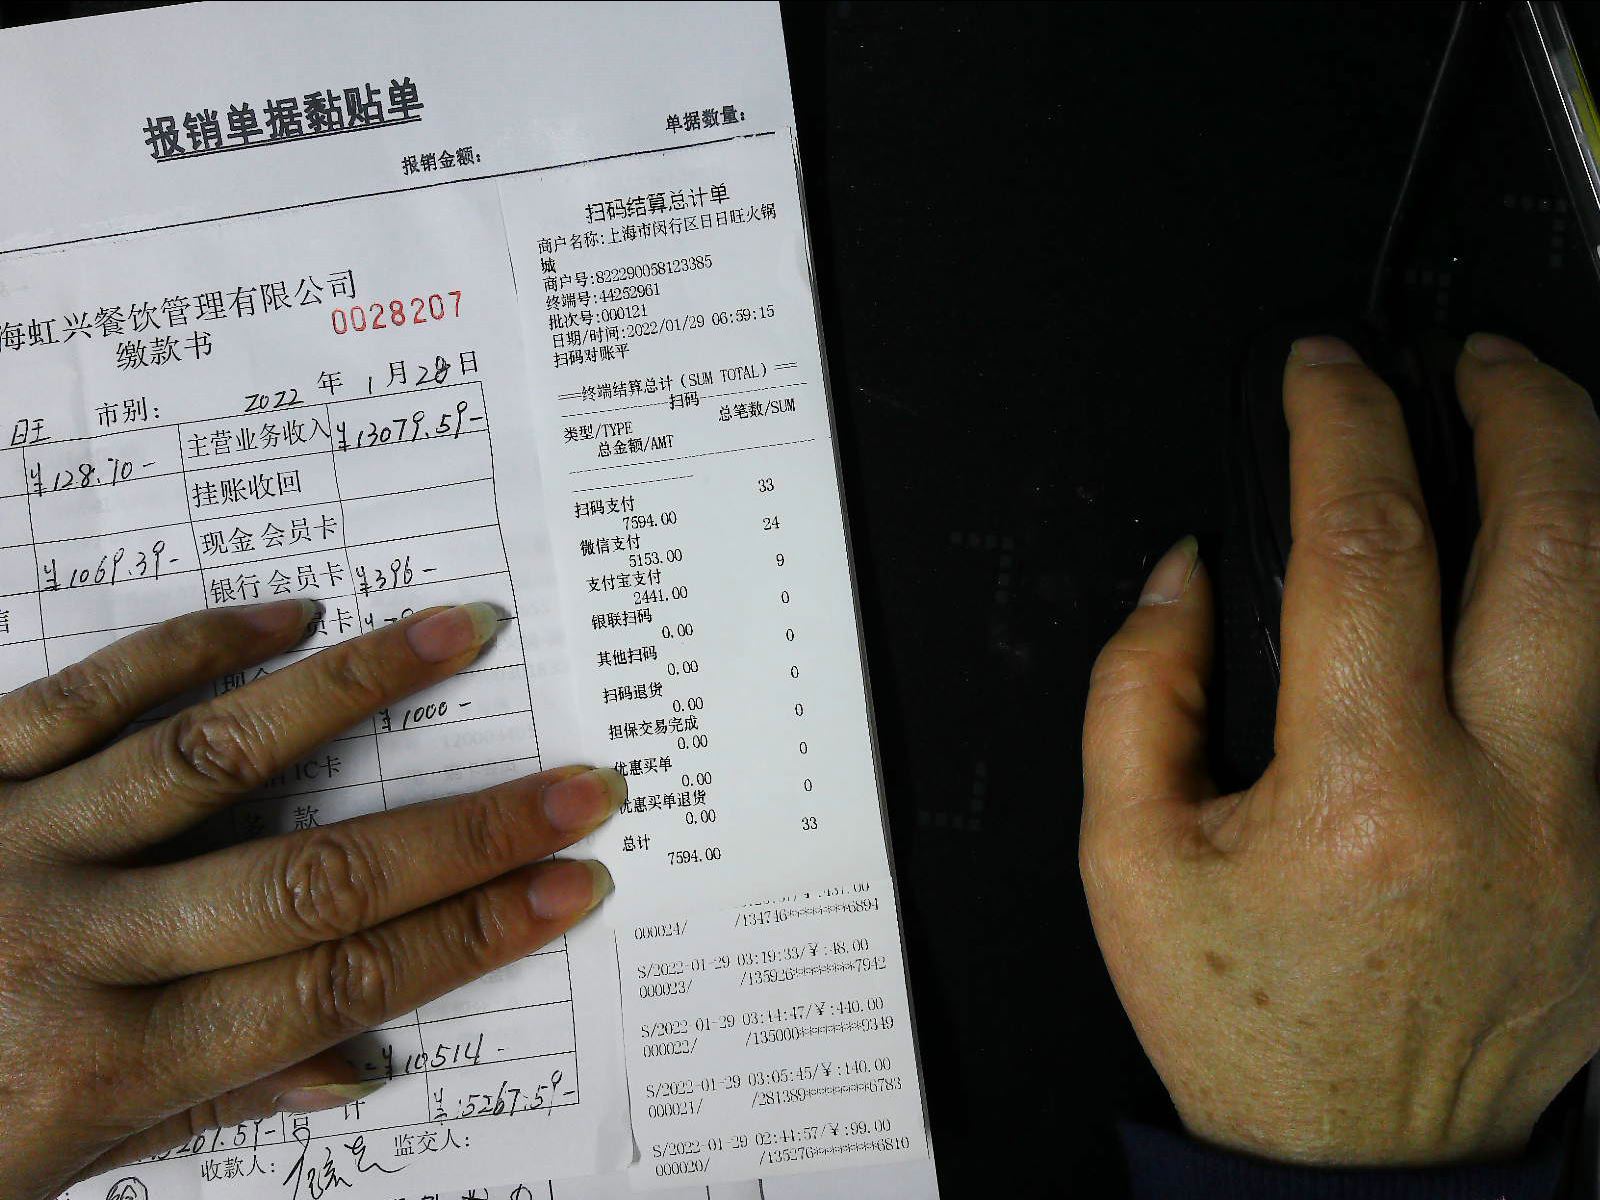 报销单据黏贴单
报销金额:
单据数量:
海虹兴餐饮管理有限公司
缴款书
0028207
市别:
2022 年 1 月 28 日
日王
¥128.70-
主营业务收入
¥13079.59-
挂账收回
¥1069.39-
现金会员卡
银行会员卡
¥396-
员卡
¥1000-
IC卡
款
¥10514-
合计
5267.59-
收款人:
监交人:
扫码结算总计单
商户名称:上海市闵行区日日旺火锅
城
商户号:822290058123385
终端号:44252961
批次号:000121
日期/时间:2022/01/29 06:59:15
扫码对账平
===终端结算总计(SUM TOTAL)===
扫码
类型/TYPE 总笔数/SUM
总金额/AMT
扫码支付 33
7594.00
微信支付 24
5153.00
支付宝支付 9
2441.00
银联扫码 0
0.00
其他扫码 0
0.00
扫码退货 0
0.00
担保交易完成 0
0.00
优惠买单 0
0.00
优惠买单退货 0
0.00
总计 33
7594.00
000024/ /134746********6894
S/2022-01-29 03:19:33/¥:48.00
000023/ /135926********7942
S/2022-01-29 03:44:47/¥:440.00
000022/ /135000********9349
S/2022-01-29 03:05:45/¥:140.00
000021/ /281389********6783
S/2022-01-29 02:44:57/¥:99.00
000020/ /135276********6810